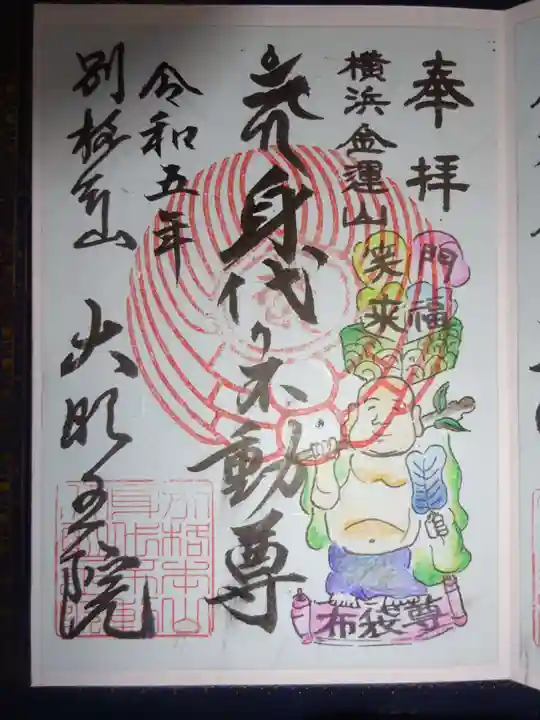 奉拝
横浜金運山
笑門
来福
布袋尊
身代り不動尊
令和五年
別格本山 大明王院